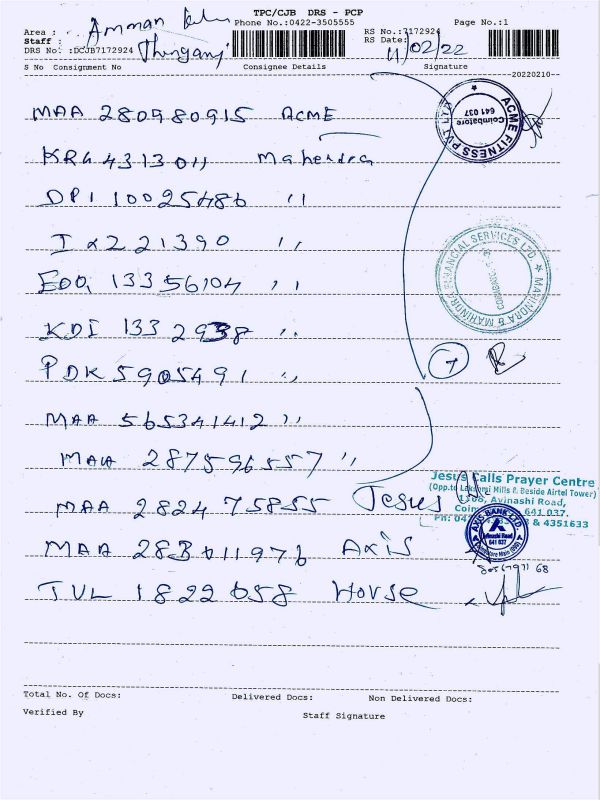 TPC/CJB DRS - PCP
Area : Amman
Phone No.:0422-3505555
Page No.:1
Staff :
RS No.:7172924
DRS No. :DCJB7172924
RS Date: 11/02/22
S No Consignment No Consignee Details Signature
20220210
MAA 280980915 ACME
KRG 4313011 Mahendra
DPI 10025486 "
I 221390 "
13356104 "
KDI 1332938 "
PDK 5905491 "
MAA 565341412 "
MAA 287596557 "
MAA 282475855 Jesus
MAA 283011976 Axis
TVL 1822658 Horse
ACME FITNESS PVT LTD
Coimbatore
641 037
MAHINDRA & MAHINDRA FINANCIAL SERVICES LTD.
COIMBATORE
7
Jesus Calls Prayer Centre
(Opp.to Lakshmi Mills & Beside Airtel Tower)
Avinashi Road,
641 037.
& 4351633
AXIS BANK LTD.
Avinashi Road
641 037
68
Total No. Of Docs: Delivered Docs: Non Delivered Docs:
Verified By Staff Signature